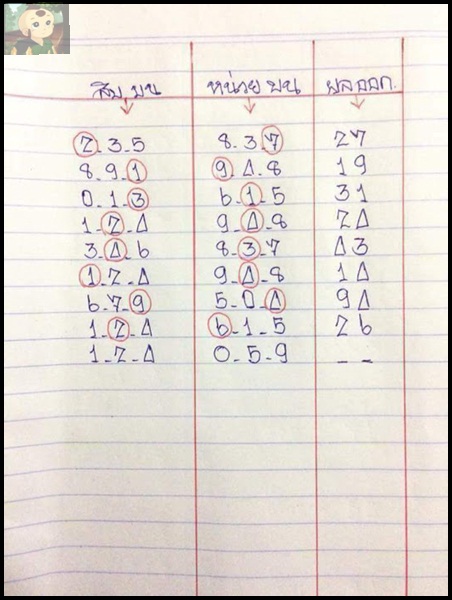 สิบ บน หน่วย บน ผลออก.
2.3.5 8.3.7 27
8.9.1 9.4.8 19
0.1.3 6.1.5 31
1-2-4 9-4-8 24
3-4-6 8-3-7 43
1-2-4 9-4-8 14
6-7-9 5-0-4 94
1-2-4 6-1-5 26
1-2-4 0-5-9 --